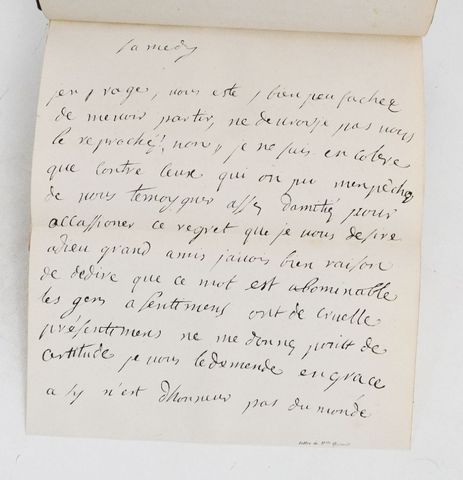 samedy
j'enrage, vous este bien peu fachée
de me voir partir, ne devrois je pas vous
le reproché, non, je ne suis en colere
que contre ceux qui on pu m'enpéchés
de vous temoygner assez d'amitié pour
occassioner ce regret que je vous desire
adieu grand amis j'avois bien raison
de dedire que ce mot est abominable
les gens a sentimens ont de cruelle
présentimens ne me donnez point de
certitude je vous le demende en grace
a sy n'est d'honneur pas du monde
Lettre de Mlle